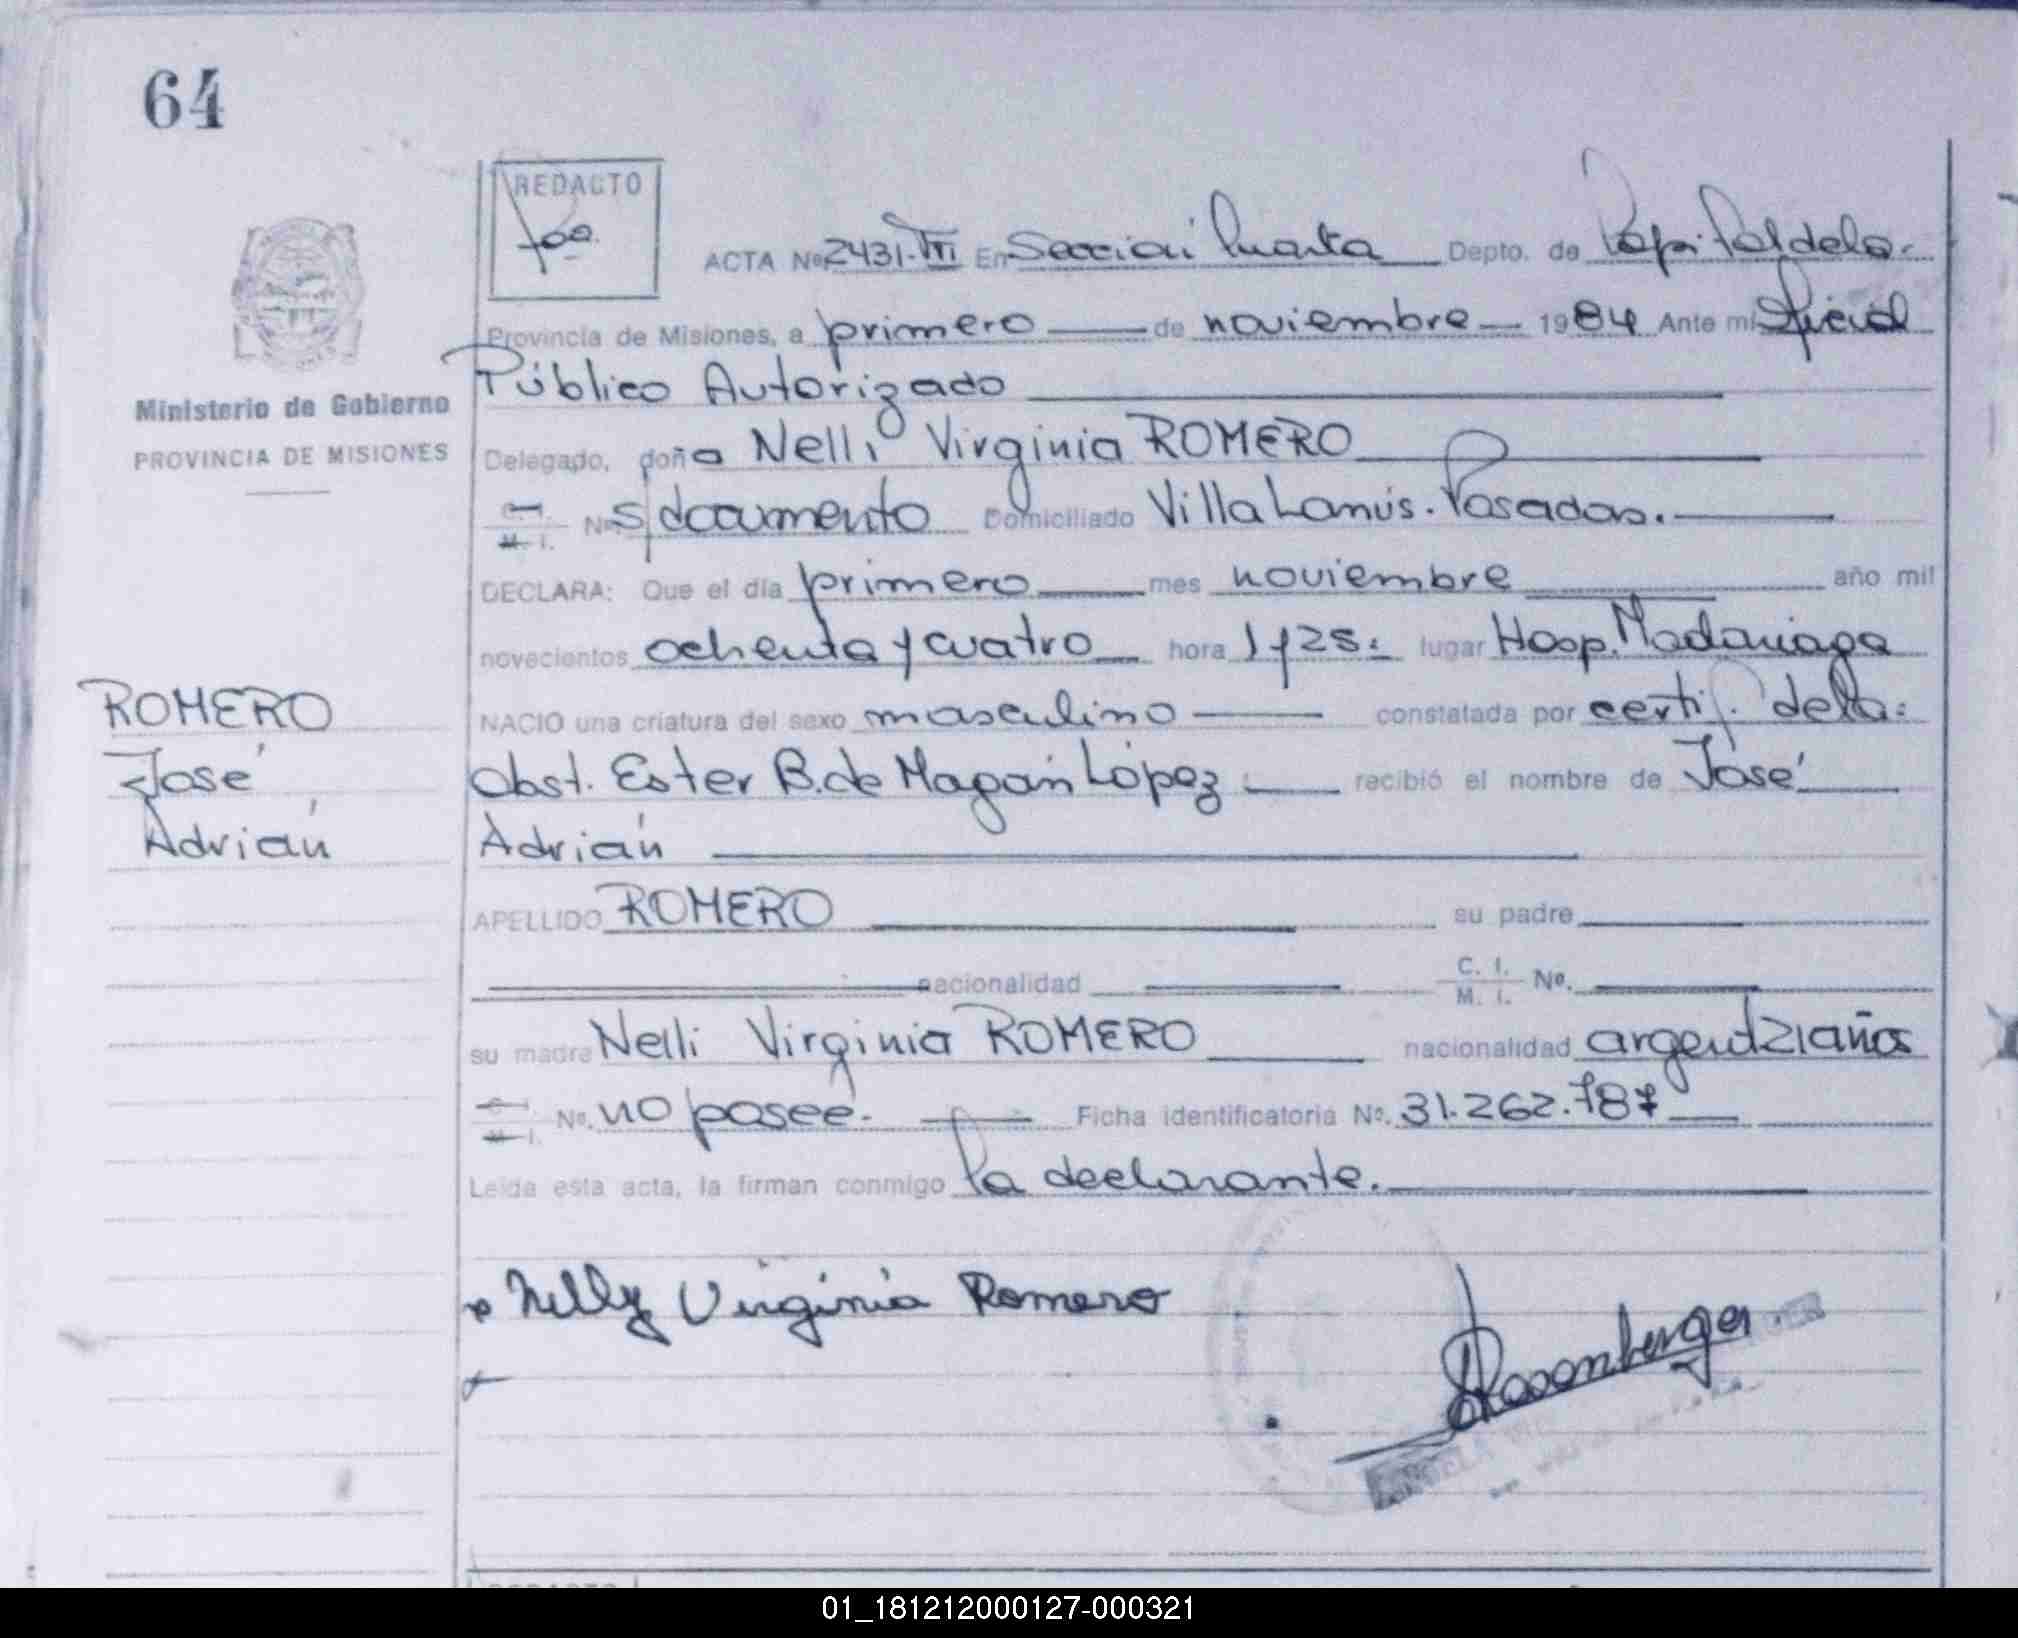 64
REDACTO
ACTA Nº 2431-VIII En Sección Cuarta Depto. de Capital de la.
Provincia de Misiones, a primero de noviembre 1984 Ante mi Oficial
Público Autorizado
Ministerio de Gobierno
PROVINCIA DE MISIONES
Delegado, doña Nelli Virginia ROMERO
C. I. M. I. Nº S/documento Domiciliado Villa Lanús. Posadas.
DECLARA: Que el día primero mes noviembre año mil
novecientos ochenta y cuatro hora 1 y 25. lugar Hosp. Madariaga
NACIO una criatura del sexo masculino constatada por certif. de la.
Obst. Ester B. de Magán López recibió el nombre de José
Adrián
ROMERO
José
Adrián
APELLIDO ROMERO su padre
nacionalidad C. I. M. I. Nº.
su madre Nelli Virginia ROMERO nacionalidad argent 21 años
C. I. M. I. Nº. no posee. Ficha identificatoria Nº. 31.262.787
Leída esta acta, la firman conmigo la declarante.
Nelly Virginia Romero
01_181212000127-000321